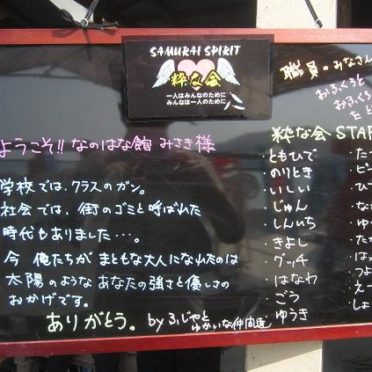 SAMURAI SPIRIT
粋な会
一人はみんなのために
みんなは一人のために
ようこそ!! なのはな館 みさき様
学校では、クラスのガン。
社会では、街のゴミと呼ばれた
時代もありました…。
今 俺たちが まともな大人になれたのは
太陽のような あなたの強さと優しさの
おかげです。
ありがとう。by ふじやと
ゆかいな仲間達
職員のみなさん
おふくろと
粋な会 STA
・ともひで
・のりとき
・いしい
・じゅん
・しんいち
・きよし
・グッチ
・はなわ
・ごう
・ゆうき